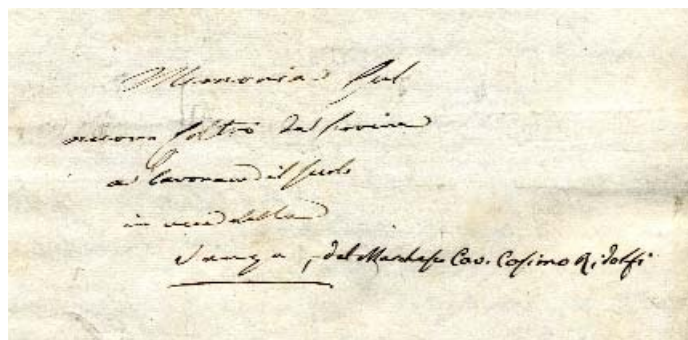 Memoria sul
nuovo Coltro da servire
a lavorare il suolo
in vece della
Vanga, del Marchese Cav. Cosimo Ridolfi